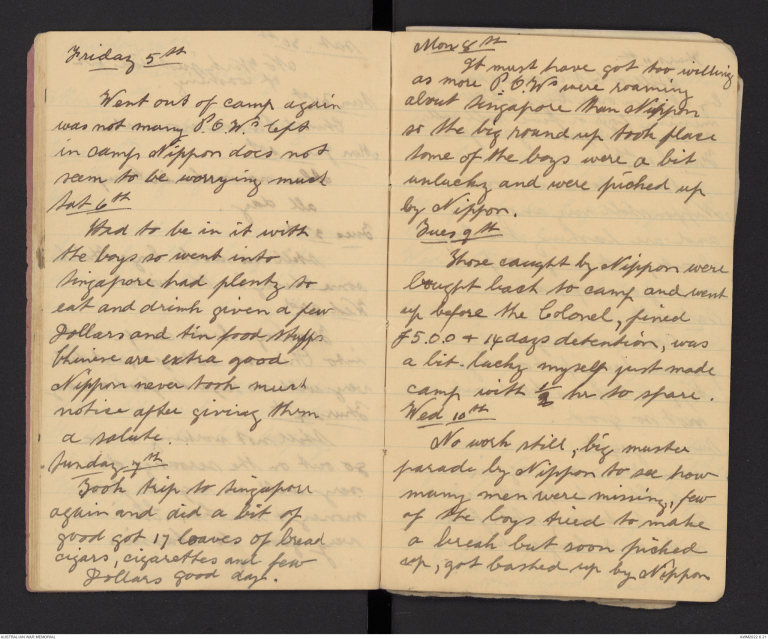 Friday 5th
Went out of camp again
was not many P.O.W.s left
in camp Nippon does not
seem to be worrying much
Sat 6th
Had to be in it with
the boys so went into
Singapore had plenty to
eat and drink given a few
Dollars and tin food stuffs
Chinese are extra good
Nippon never took much
notice after giving them
a salute.
Sunday 7th
Took trip to Singapore
again and did a bit of
good got 17 loaves of bread
cigars, cigarettes and few
Dollars good day.
Mon 8th
It must have got too willing
as more P.O.Ws were roaming
about Singapore than Nippon
so the big round up took place
some of the boys were a bit
unlucky and were picked up
by Nippon.
Tues 9th
Those caught by Nippon were
bought back to camp and went
up before the Colonel, fined
£5.0.0 + 14 days detention, was
a bit lucky myself just made
camp with 1/2 hr to spare.
Wed 10th
No work still, big muster
parade by Nippon to see how
many men were missing, few
of the boys tried to make
a break but soon picked
up, got bashed up by Nippon
AUSTRALIAN WAR MEMORIAL